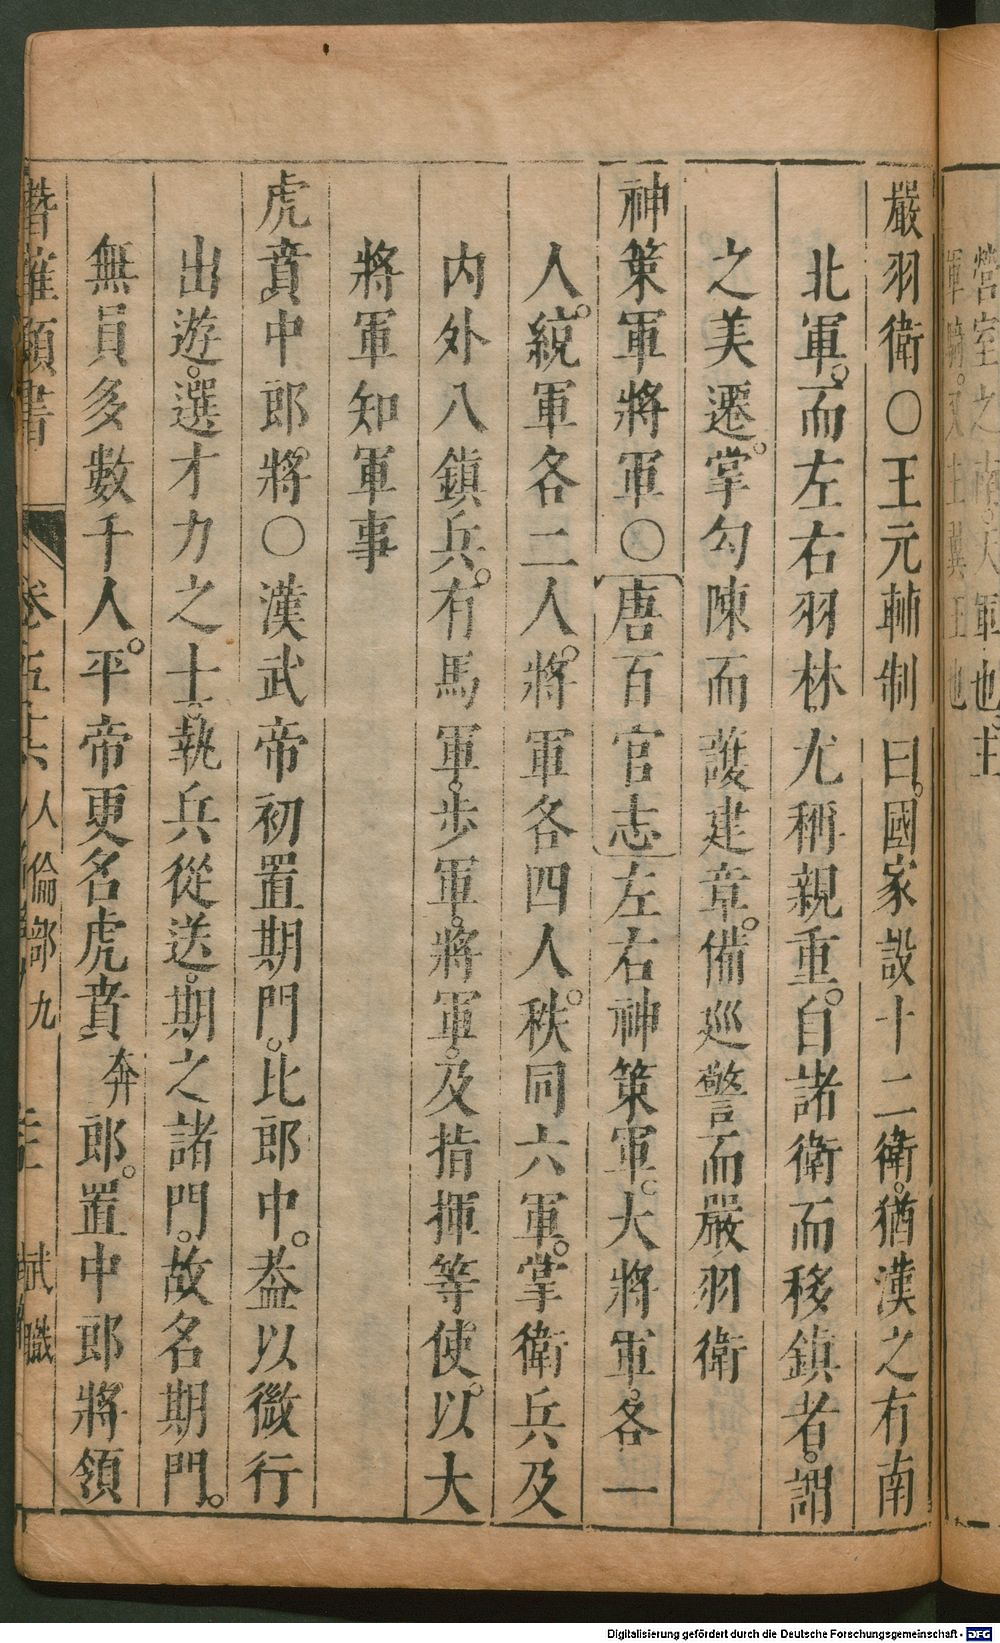 嚴羽衛○王元輔制曰。國家設十二衛。猶漢之有南
北軍。而左右羽林。尤稱親重。自諸衛而移鎮者。謂
之美遷。掌勾陳而護建章。備巡警而嚴羽衛
神策軍將軍○唐百官志左右神策軍。大將軍。各一
人。統軍各二人。將軍各四人。秩同六軍。掌衛兵及
内外八鎮兵。有馬軍。步軍。將軍。及指揮等使。以大
將軍知軍事
虎賁中郎將○漢武帝初置期門。比郎中。葢以微行
出遊。選才力之士。執兵從送。期之諸門。故名期門。
無員多數千人。平帝更名虎賁奔郎。置中郎將領
卷五十六 人倫部九 武職
營室之南。天軍也。主
Digitalisierung gefördert durch die Deutsche Forschungsgemeinschaft - DFG